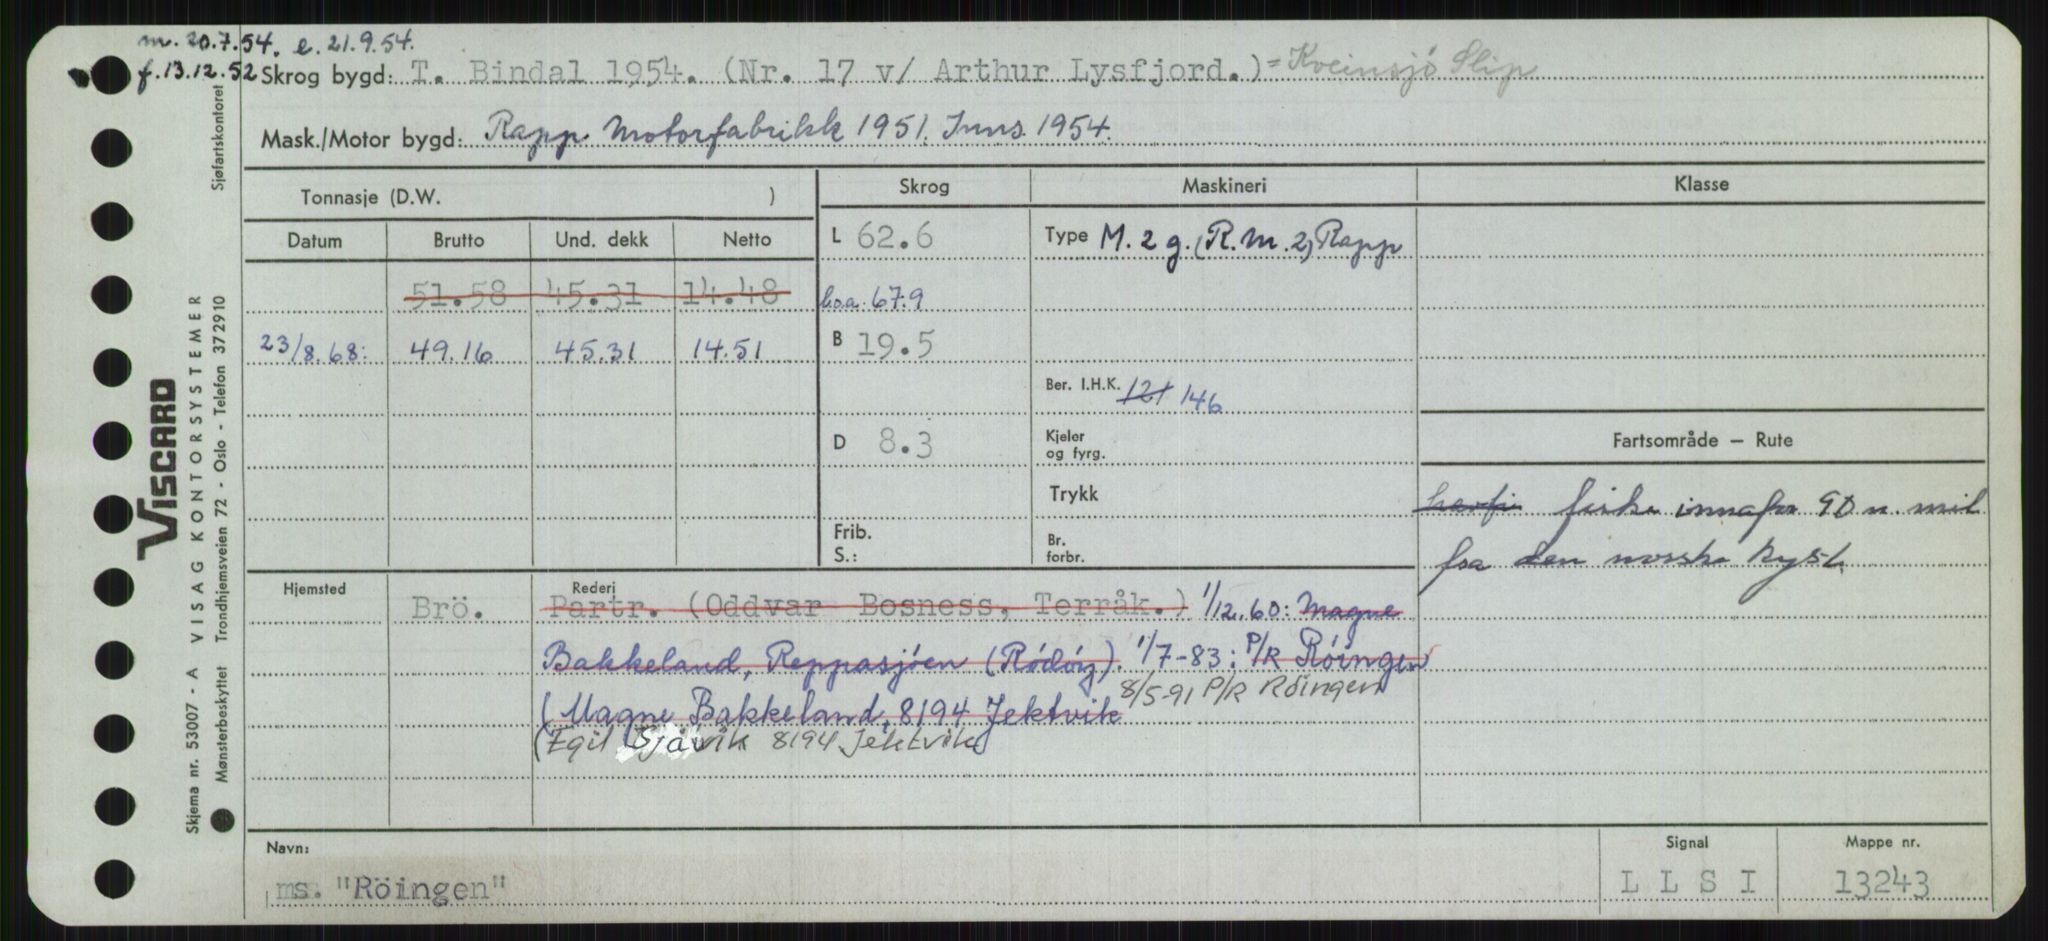 m. 20.7.54. e. 21.9.54.
f. 13.12.52 Skrog bygd: T. Bindal 1954. (Nr. 17 v/ Arthur Lysfjord.) = Kveinsjö Slip
Mask./Motor bygd: Rapp Motorfabrikk 1951. Inns. 1954.
Tonnasje (D.W. ) Skrog Maskineri Klasse
Datum Brutto Und. dekk Netto L 62.6 Type M. 2 g. (R.M.2) Rapp
51.58 45.31 14.48 l.o.a. 67.9
23/8.68: 49.16 45.31 14.51 B 19.5
Ber. I.H.K. 121 146
D 8.3 Kjeler og fyrg. Fartsområde — Rute
Trykk
havfi fiske innafor 90 n. mil
fra den norske kyst.
Frib. S.: Br. forbr.
Hjemsted Rederi
Brö. Partr. (Oddvar Bosness, Terråk.) 1/12.60: Magne
Bakkeland, Reppasjöen (Rödöy). 1/7-83: P/R Röingen
(Magne Bakkeland, 8194 Jektvik 8/5-91 P/R Röingen
(Egil Sjåvik 8194 Jektvik)
Navn: Signal Mappe nr.
ms. "Röingen" L L S I 13243
VISCARD
VISAG KONTORSYSTEMER
Skjema nr. 53007 - A
Mønsterbeskyttet Trondhjemsveien 72 - Oslo - Telefon 372910 Sjøfartskontoret